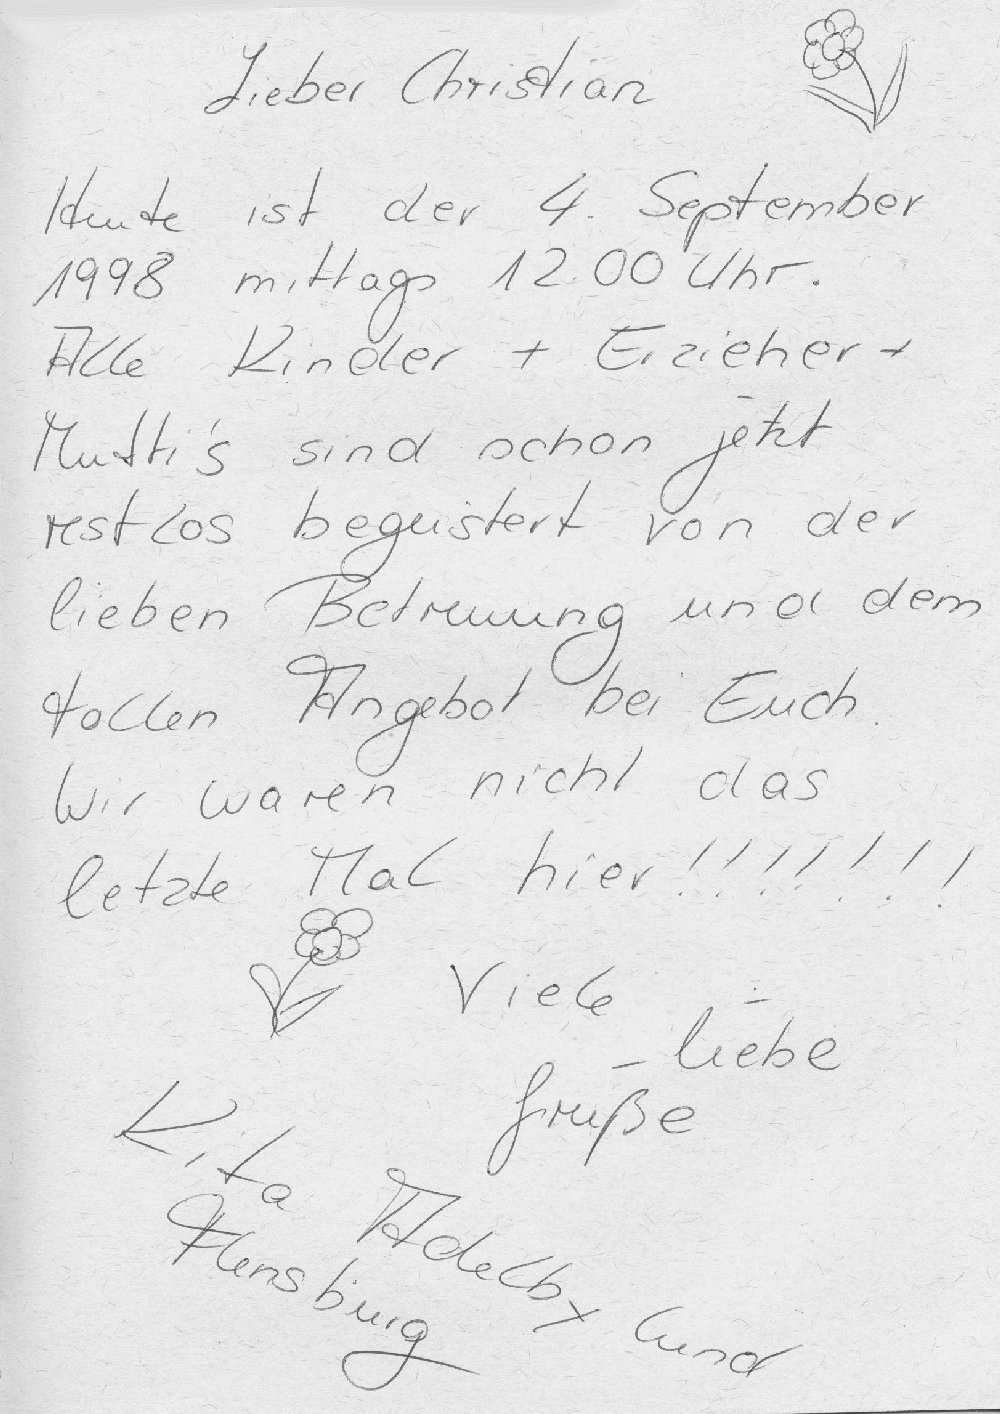 Lieber Christian
Heute ist der 4. September
1998 mittags 12.00 Uhr.
Alle Kinder + Erzieher +
Mutti's sind schon jetzt
restlos begeistert von der
lieben Betreuung und dem
tollen Angebot bei Euch.
Wir waren nicht das
letzte Mal hier!!!!!!!
Viele
liebe
Grüße
Kita Adelby Lund
Flensburg